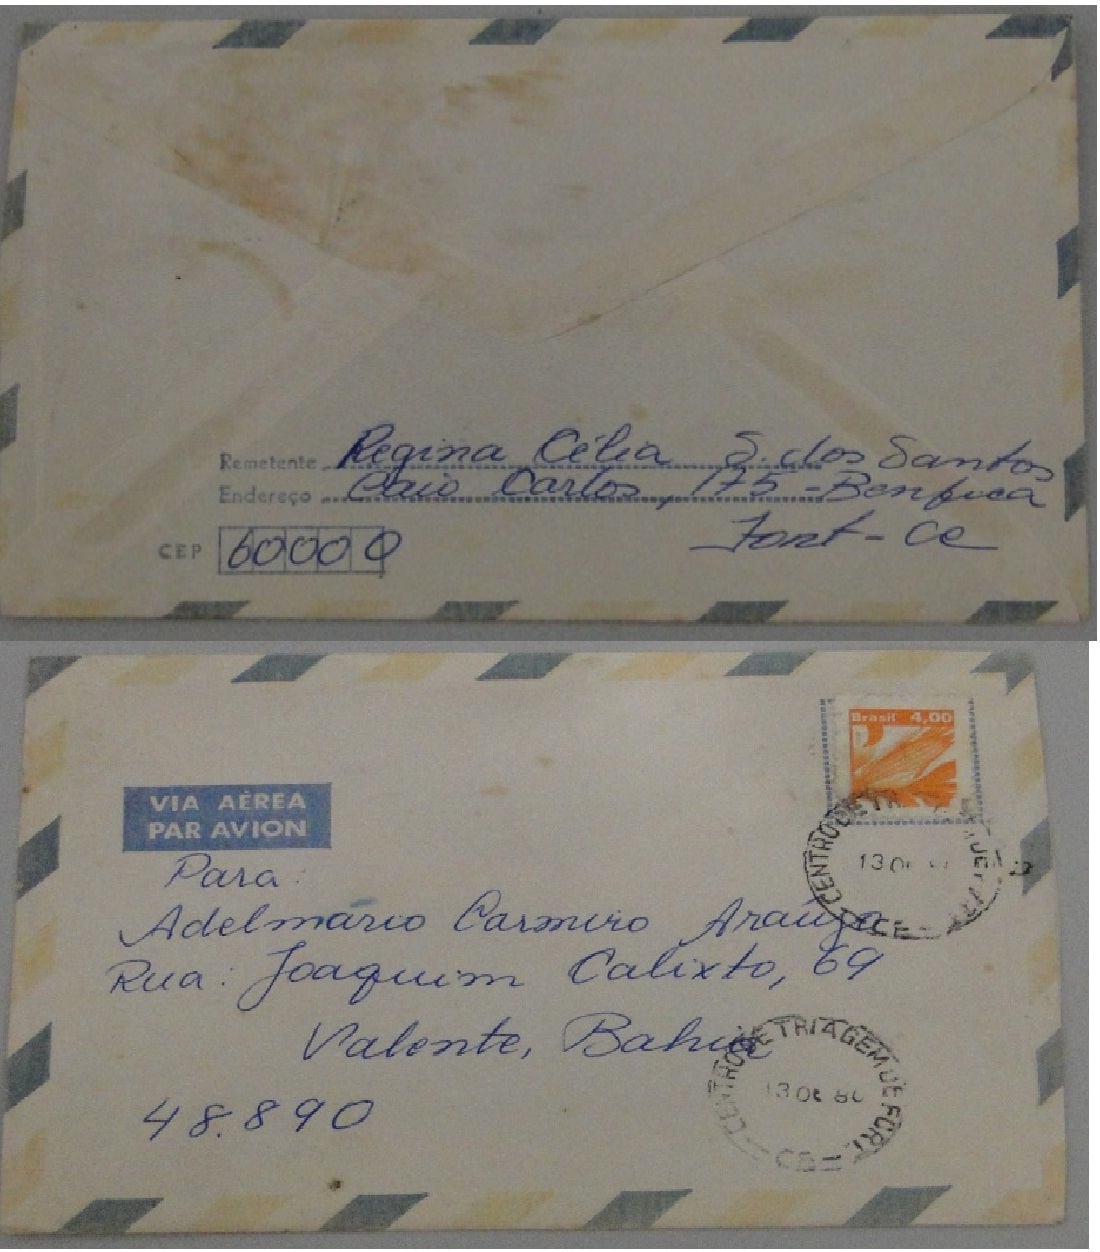 Remetente Regina Célia S. dos Santos
Endereço Caio Carlos, 175 - Benfica
Fort - Ce
CEP 60000
Brasil 4,00
VIA AÉREA
PAR AVION
CENTRO DE
13
CE
Para:
Adelmário Carneiro Araújo
Rua: Joaquim Calixto, 69
Valente, Bahia
48.890
CENTRO DE TRIAGEM DE FORT.
13 80
CE